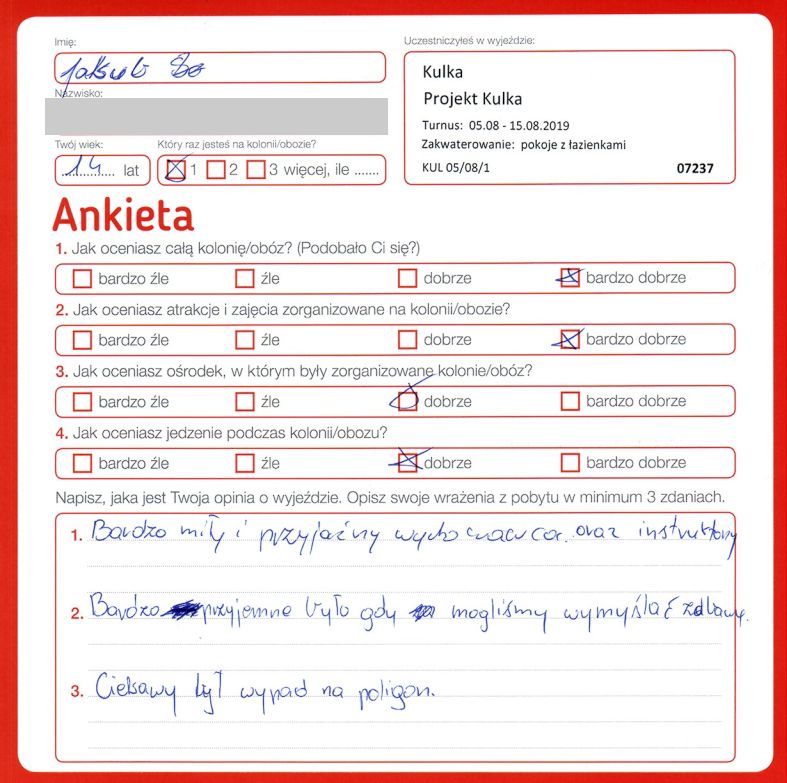 Imię:
Jakub
Nazwisko:
Twój wiek:
14 lat
Który raz jesteś na kolonii/obozie?
1 2 3 więcej, ile .......
Uczestniczyłeś w wyjeździe:
Kulka
Projekt Kulka
Turnus: 05.08 - 15.08.2019
Zakwaterowanie: pokoje z łazienkami
KUL 05/08/1 07237
Ankieta
1. Jak oceniasz całą kolonię/obóz? (Podobało Ci się?)
bardzo źle źle dobrze bardzo dobrze
2. Jak oceniasz atrakcje i zajęcia zorganizowane na kolonii/obozie?
bardzo źle źle dobrze bardzo dobrze
3. Jak oceniasz ośrodek, w którym były zorganizowane kolonie/obóz?
bardzo źle źle dobrze bardzo dobrze
4. Jak oceniasz jedzenie podczas kolonii/obozu?
bardzo źle źle dobrze bardzo dobrze
Napisz, jaka jest Twoja opinia o wyjeździe. Opisz swoje wrażenia z pobytu w minimum 3 zdaniach.
1. Bardzo miły i przyjaźny wychowawca. oraz instruktorzy
2. Bardzo przyjemne było gdy mogliśmy wymyślać zabawy.
3. Ciekawy był wypad na poligon.